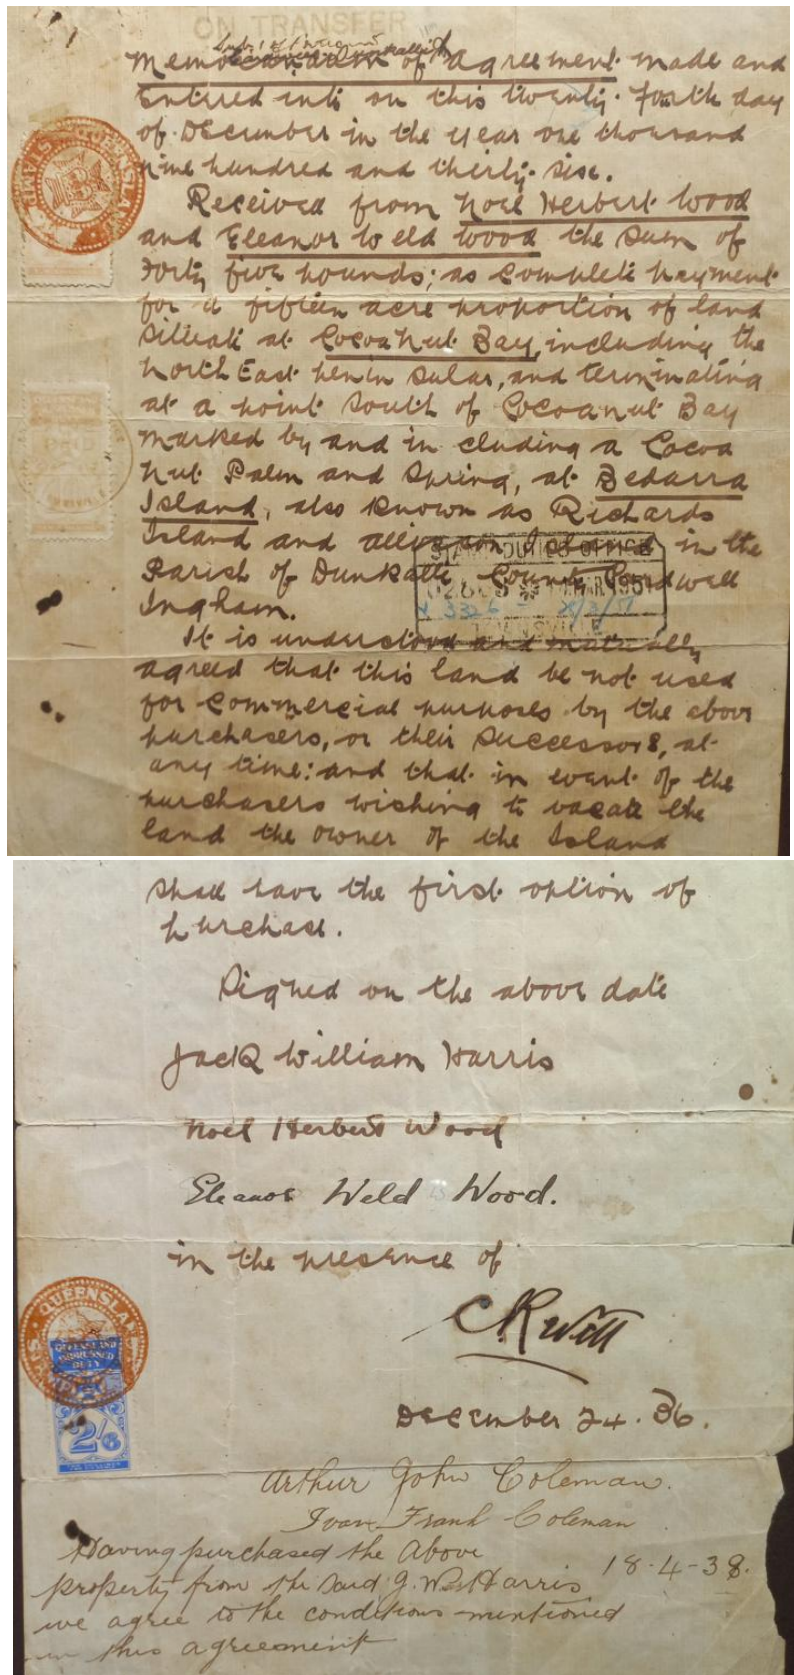 ON TRANSFER
Memorandum of Agreement made and
Entered into on this twenty-Fourth day
of December in the year one thousand
nine hundred and thirty-six.
Received from Noel Herbert Wood
and Eleanor Weld Wood the sum of
Forty five pounds; as complete payment
for a fifteen acre proportion of land
situate at Cocoanut Bay, including the
North East peninsular, and terminating
at a point South of Cocoanut Bay
marked by and in cluding a Cocoa
Nut Palm and Spring, at Bedarra
Island, also known as Richards
Island and Island in the
Parish of County Cardwell
Ingham.
STAMP DUTIES OFFICE
MAR 1951
It is understood and mutually
agreed that this land be not used
for commercial purposes by the above
purchasers, or their successors, at
any time: and that in event of the
purchasers wishing to vacate the
land the owner of the Island
shall have the first option of
purchase.
Signed on the above date
Jack William Harris
Noel Herbert Wood
Eleanor Weld Wood.
in the presence of
QUEENSLAND
QUEENSLAND
IMPRESSED
DUTY
2/6
December 24. 36.
Arthur John Coleman.
Ivan Frank Coleman
Having purchased the Above
18-4-38.
property from the said J. W. Harris
we agree to the conditions mentioned
in this agreement